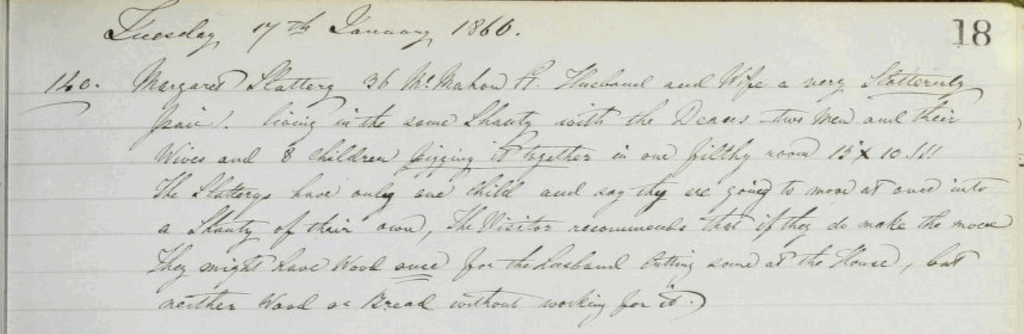 Tuesday 17th January 1860. 18
140. Margaret Slattery 36 McMahon St. Husband and Wife a very Slatternly
pair. living in the same Shanty with the Deaces two men and their
Wives and 8 Children pigging it together in one filthy room 15 x 10.!!!
The Slatterys have only one Child and say they are going to move at once into
a Shanty of their own, The Visitor recommends that if they do make the move
They might have Wood once for the husband Cutting some at the House, but
neither Wood or Bread without working for it.